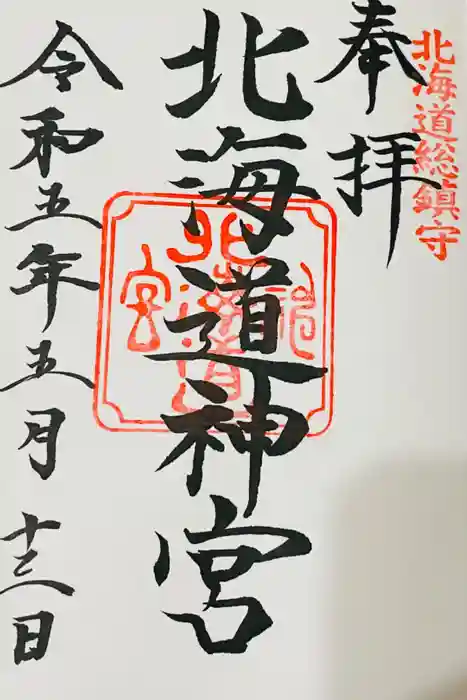 北海道総鎮守
奉拝
北海道神宮
北海道神宮
令和五年五月十三日